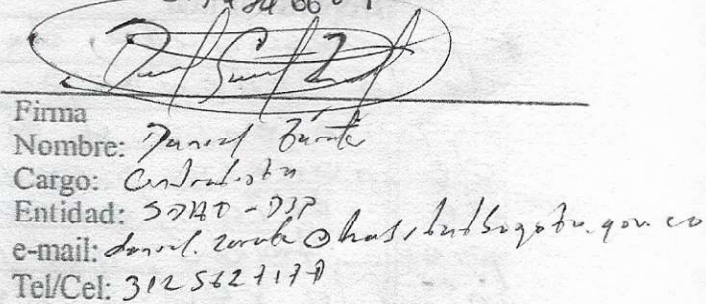 Firma
Nombre: Daniel Zárate
Cargo: Contratista
Entidad: SDHT - DSP
e-mail: daniel.zarate@habitatbogota.gov.co
Tel/Cel: 312 562